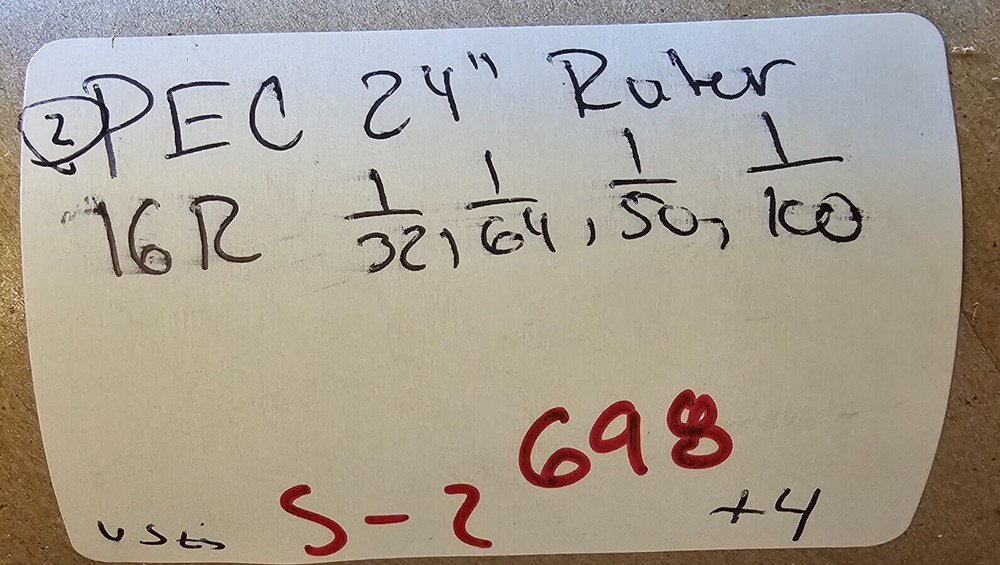 2 PEC 24" Ruler
16R 1/32, 1/64, 1/50, 1/100
698
S-2 +4